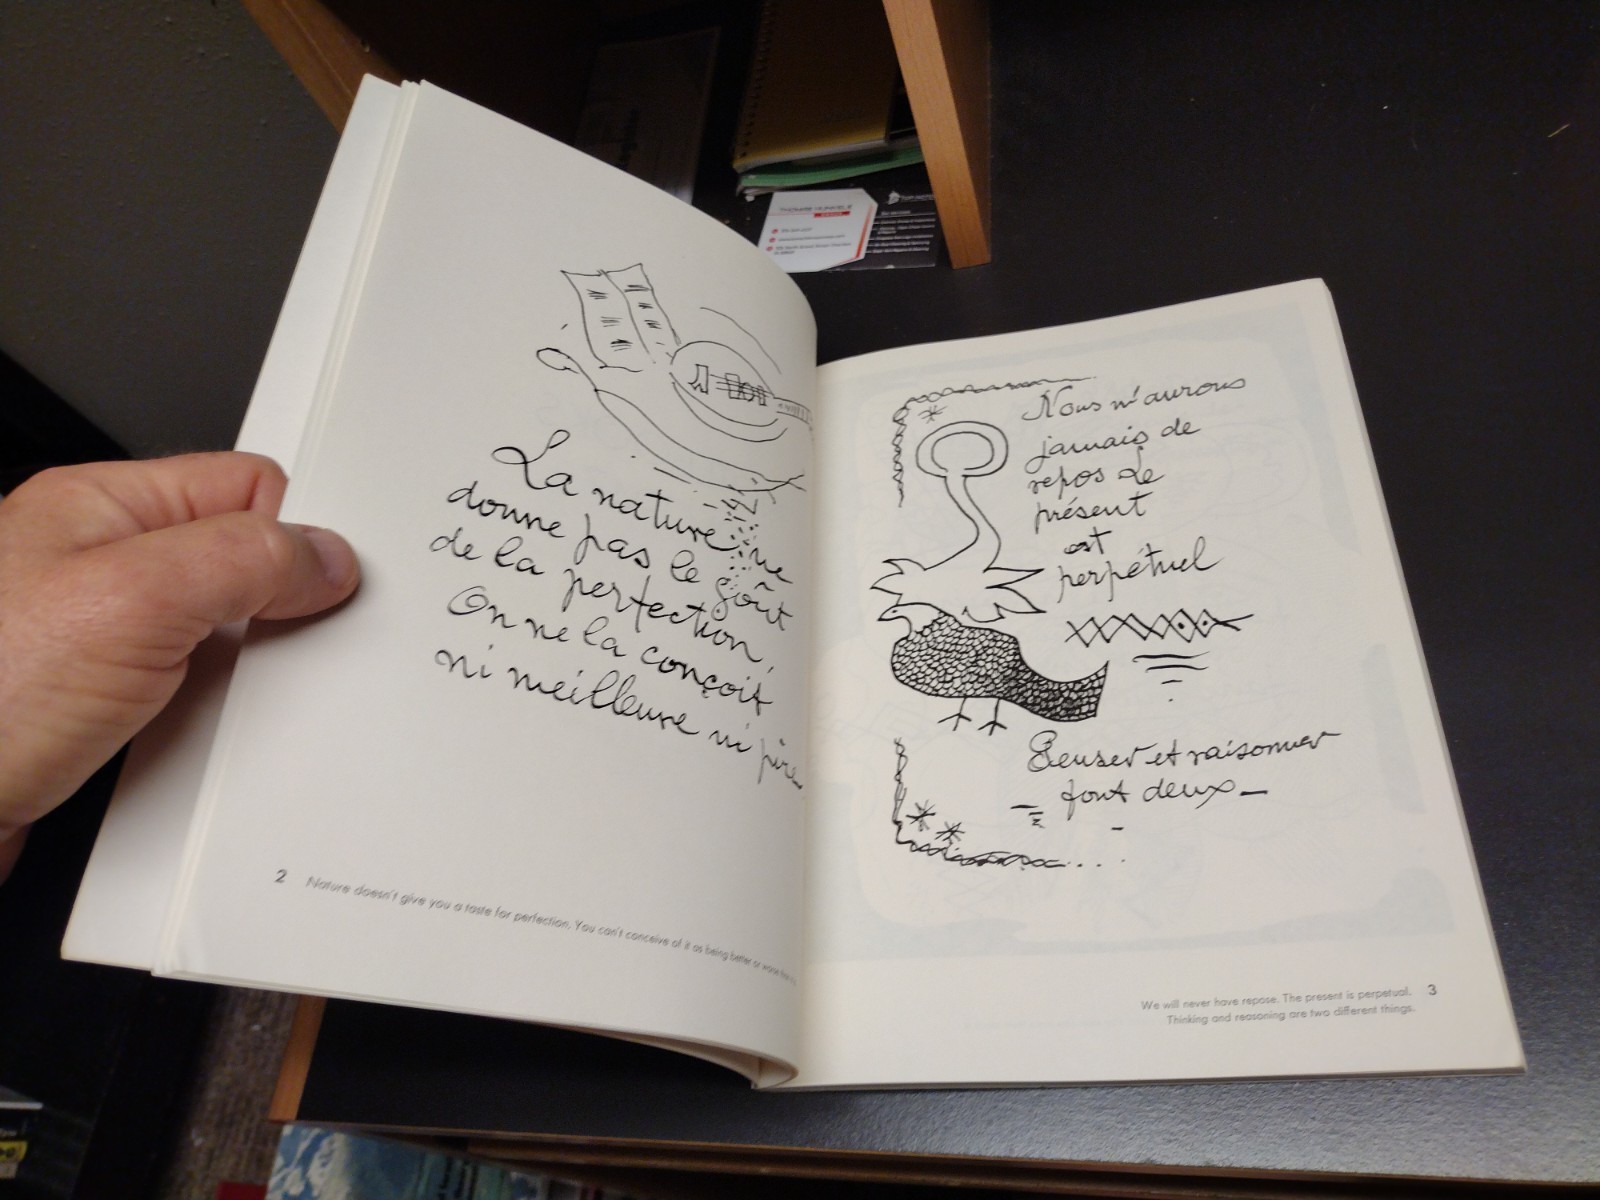 La nature ne
donne pas le goût
de la perfection,
On ne la conçoit
ni meilleure ni pire
2 Nature doesn't give you a taste for perfection. You can't conceive of it as being better or worse
Nous n'aurons
jamais de
repos Le
présent
est
perpétuel
Penser et raisonner
font deux
We will never have repose. The present is perpetual. 3
Thinking and reasoning are two different things.